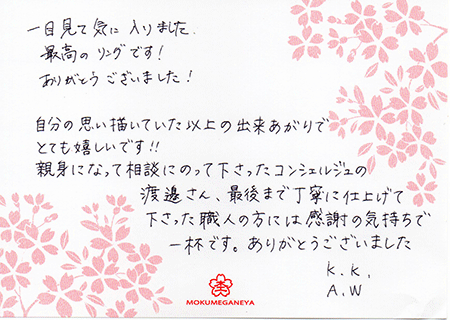 一目見て気に入りました.
最高のリングです!
ありがとうございました!
自分の思い描いていた以上の出来あがりで
とても嬉しいです!!
親身になって相談にのって下さったコンシェルジュの
渡邉さん、最後まで丁寧に仕上げて
下さった職人の方には感謝の気持ちで
一杯です。ありがとうございました
K.K.
A.W
MOKUMEGANEYA